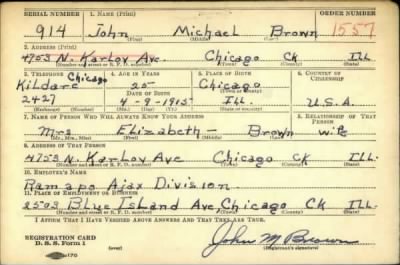 SERIAL NUMBER 1. NAME (Print) ORDER NUMBER
914 John Michael Brown 1557
(First) (Middle) (Last)
2. ADDRESS (Print)
4753 N. Karlov Ave. Chicago Ck Ill
(Number and street or R. F. D. number) (Town) (County) (State)
3. TELEPHONE 4. AGE IN YEARS 5. PLACE OF BIRTH 6. COUNTRY OF CITIZENSHIP
Chicago
Kildare 25 Chicago
DATE OF BIRTH (Town or county)
2427 4-9-1915 Ill. U.S.A.
(Exchange) (Number) (Mo.) (Day) (Yr.) (State or country)
7. NAME OF PERSON WHO WILL ALWAYS KNOW YOUR ADDRESS 8. RELATIONSHIP OF THAT PERSON
Mrs Elizabeth - Brown wife
(Mr., Mrs., Miss) (First) (Middle) (Last)
9. ADDRESS OF THAT PERSON
4753 N. Karlov Ave Chicago Ck Ill.
(Number and street or R. F. D. number) (Town) (County) (State)
10. EMPLOYER'S NAME
Ramapo Ajax Division.
11. PLACE OF EMPLOYMENT OR BUSINESS
2503 Blue Island Ave Chicago Ck Ill.
(Number and street or R. F. D. number) (Town) (County) (State)
I AFFIRM THAT I HAVE VERIFIED ABOVE ANSWERS AND THAT THEY ARE TRUE.
REGISTRATION CARD
D. S. S. Form 1 (over) John M Brown
(Registrant's signature)